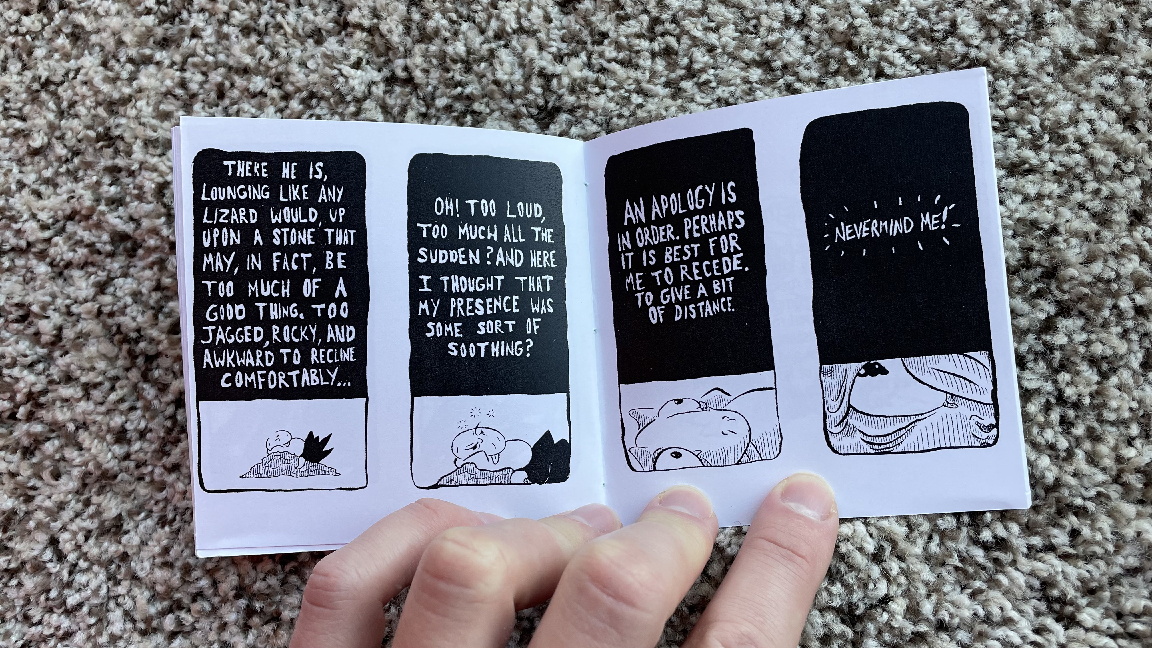 THERE HE IS,
LOUNGING LIKE ANY
LIZARD WOULD, UP
UPON A STONE THAT
MAY, IN FACT, BE
TOO MUCH OF A
GOOD THING. TOO
JAGGED, ROCKY, AND
AWKWARD TO RECLINE
COMFORTABLY...
OH! TOO LOUD,
TOO MUCH ALL THE
SUDDEN? AND HERE
I THOUGHT THAT
MY PRESENCE WAS
SOME SORT OF
SOOTHING?
AN APOLOGY IS
IN ORDER. PERHAPS
IT IS BEST FOR
ME TO RECEDE.
TO GIVE A BIT
OF DISTANCE.
NEVERMIND ME!